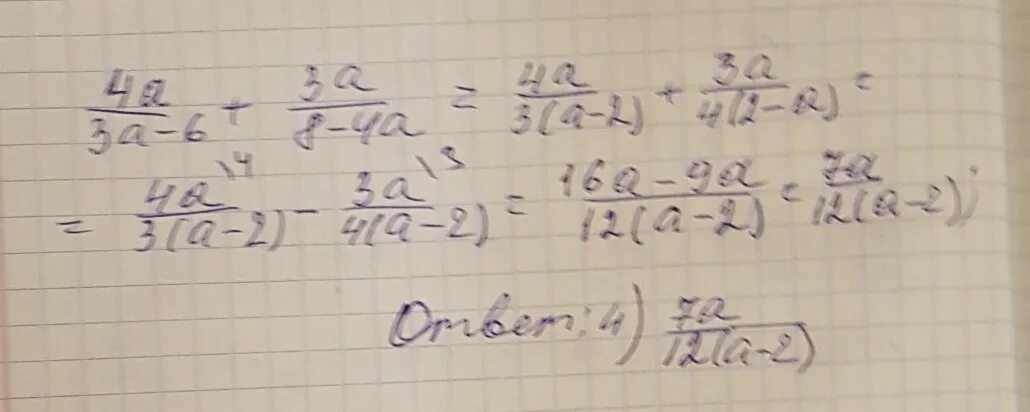 4a/(3a-6) + 3a/(8-4a) = 4a/(3(a-2)) + 3a/(4(2-a)) =
= 4a\4/(3(a-2)) - 3a\3/(4(a-2)) = (16a-9a)/(12(a-2)) = 7a/(12(a-2));
Ответ: 4) 7a/(12(a-2))